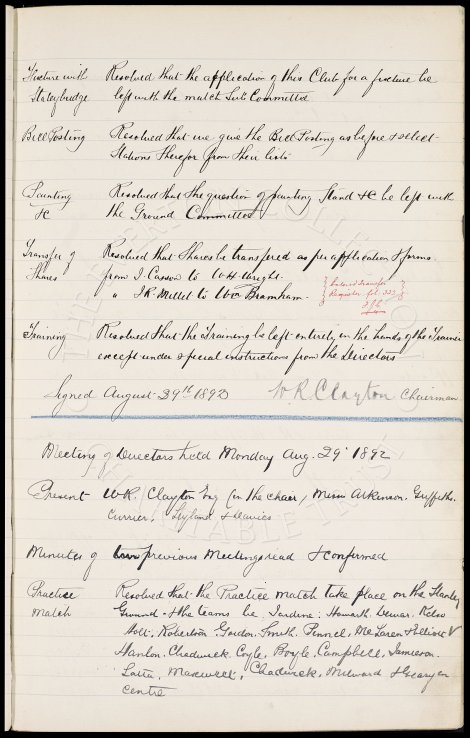 Fixture with Resolved that the application of this Club for a fixture be
Staleybridge left with the match Sub Committee
Bill Posting Resolved that we give the Bill Posting as before & select
Stations therefor from their lists
Painting Resolved that the question of painting Stand &c be left with
&c the Ground Committee
Transfer of Resolved that Shares be transferred as per application & forms
Shares from J. Casson to W H Wright.
" J K Millet to Wm Bramham.
Entered Transfer
Register fol. 323
Training Resolved that the Training be left entirely in the hands of the Trainer
except under special instructions from the Directors
Signed August 29th 1892 W. R. Clayton Chairman
Meeting of Directors held Monday Aug. 29 1892
Present W. R. Clayton Esq (in the chair) Messrs Atkinson. Griffiths.
Currier. Leyland & Davies
Minutes of previous Meetings read & confirmed
Practice Resolved that the Practice match take place on the Stanley
Match Ground & the teams be Jardine. Howarth. Dewar. Kelso
Holt. Robertson Gordon. Smith. Pinnel. McLaren & Elliott V
Hanlon. Chadwick. Coyle. Boyle. Campbell. Jamieson.
Latta. Maxwell. Chadwick. Milward & Geary in
centre